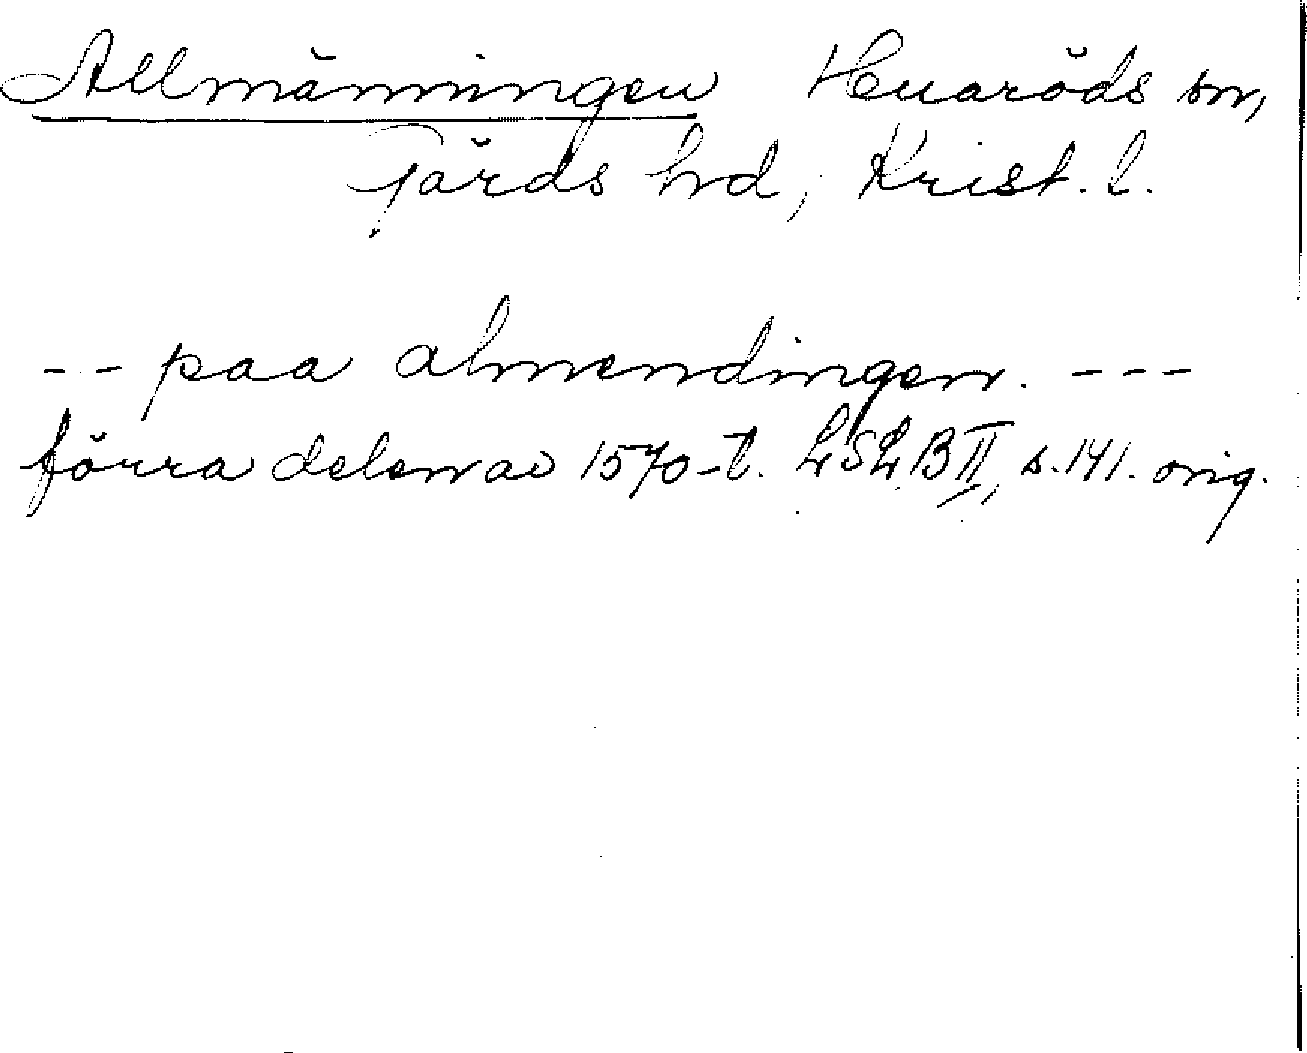 Allmänningen Huaröds sn,
Gärds hd, Krist. l.
-- paa almendingen. ---
förra delen av 1570-t. LSLB II, s. 141. orig.